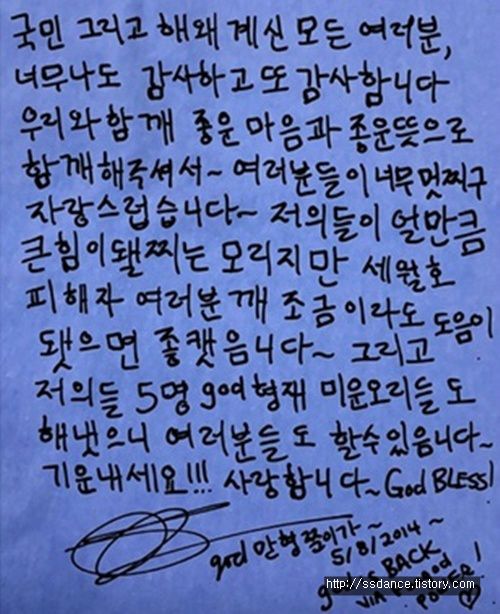 국민 그리고 해왜 계신 모든 여러분,
너무나도 감사하고 또 감사합니다
우리와 함깨 좋운 마음과 좋운뜻으로
함깨해주셔서~ 여러분들이 너무 멋찌구
자랑스럽습니다~ 저의들이 얼만큼
큰힘이 됄찌는 모리지만 세월호
피해자 여러분깨 조금이라도 도음이
됏으면 좋캣음니다~ 그리고
저의들 5명 god형재 미운오리들도
해냇으니 여러분들도 할수있음니다~
기운내세요!!! 사랑합니다~ God BLESS!
god 맏형쭌이가~
5/8/2014~
BACK
VIA
http://ssdance.tistory.com